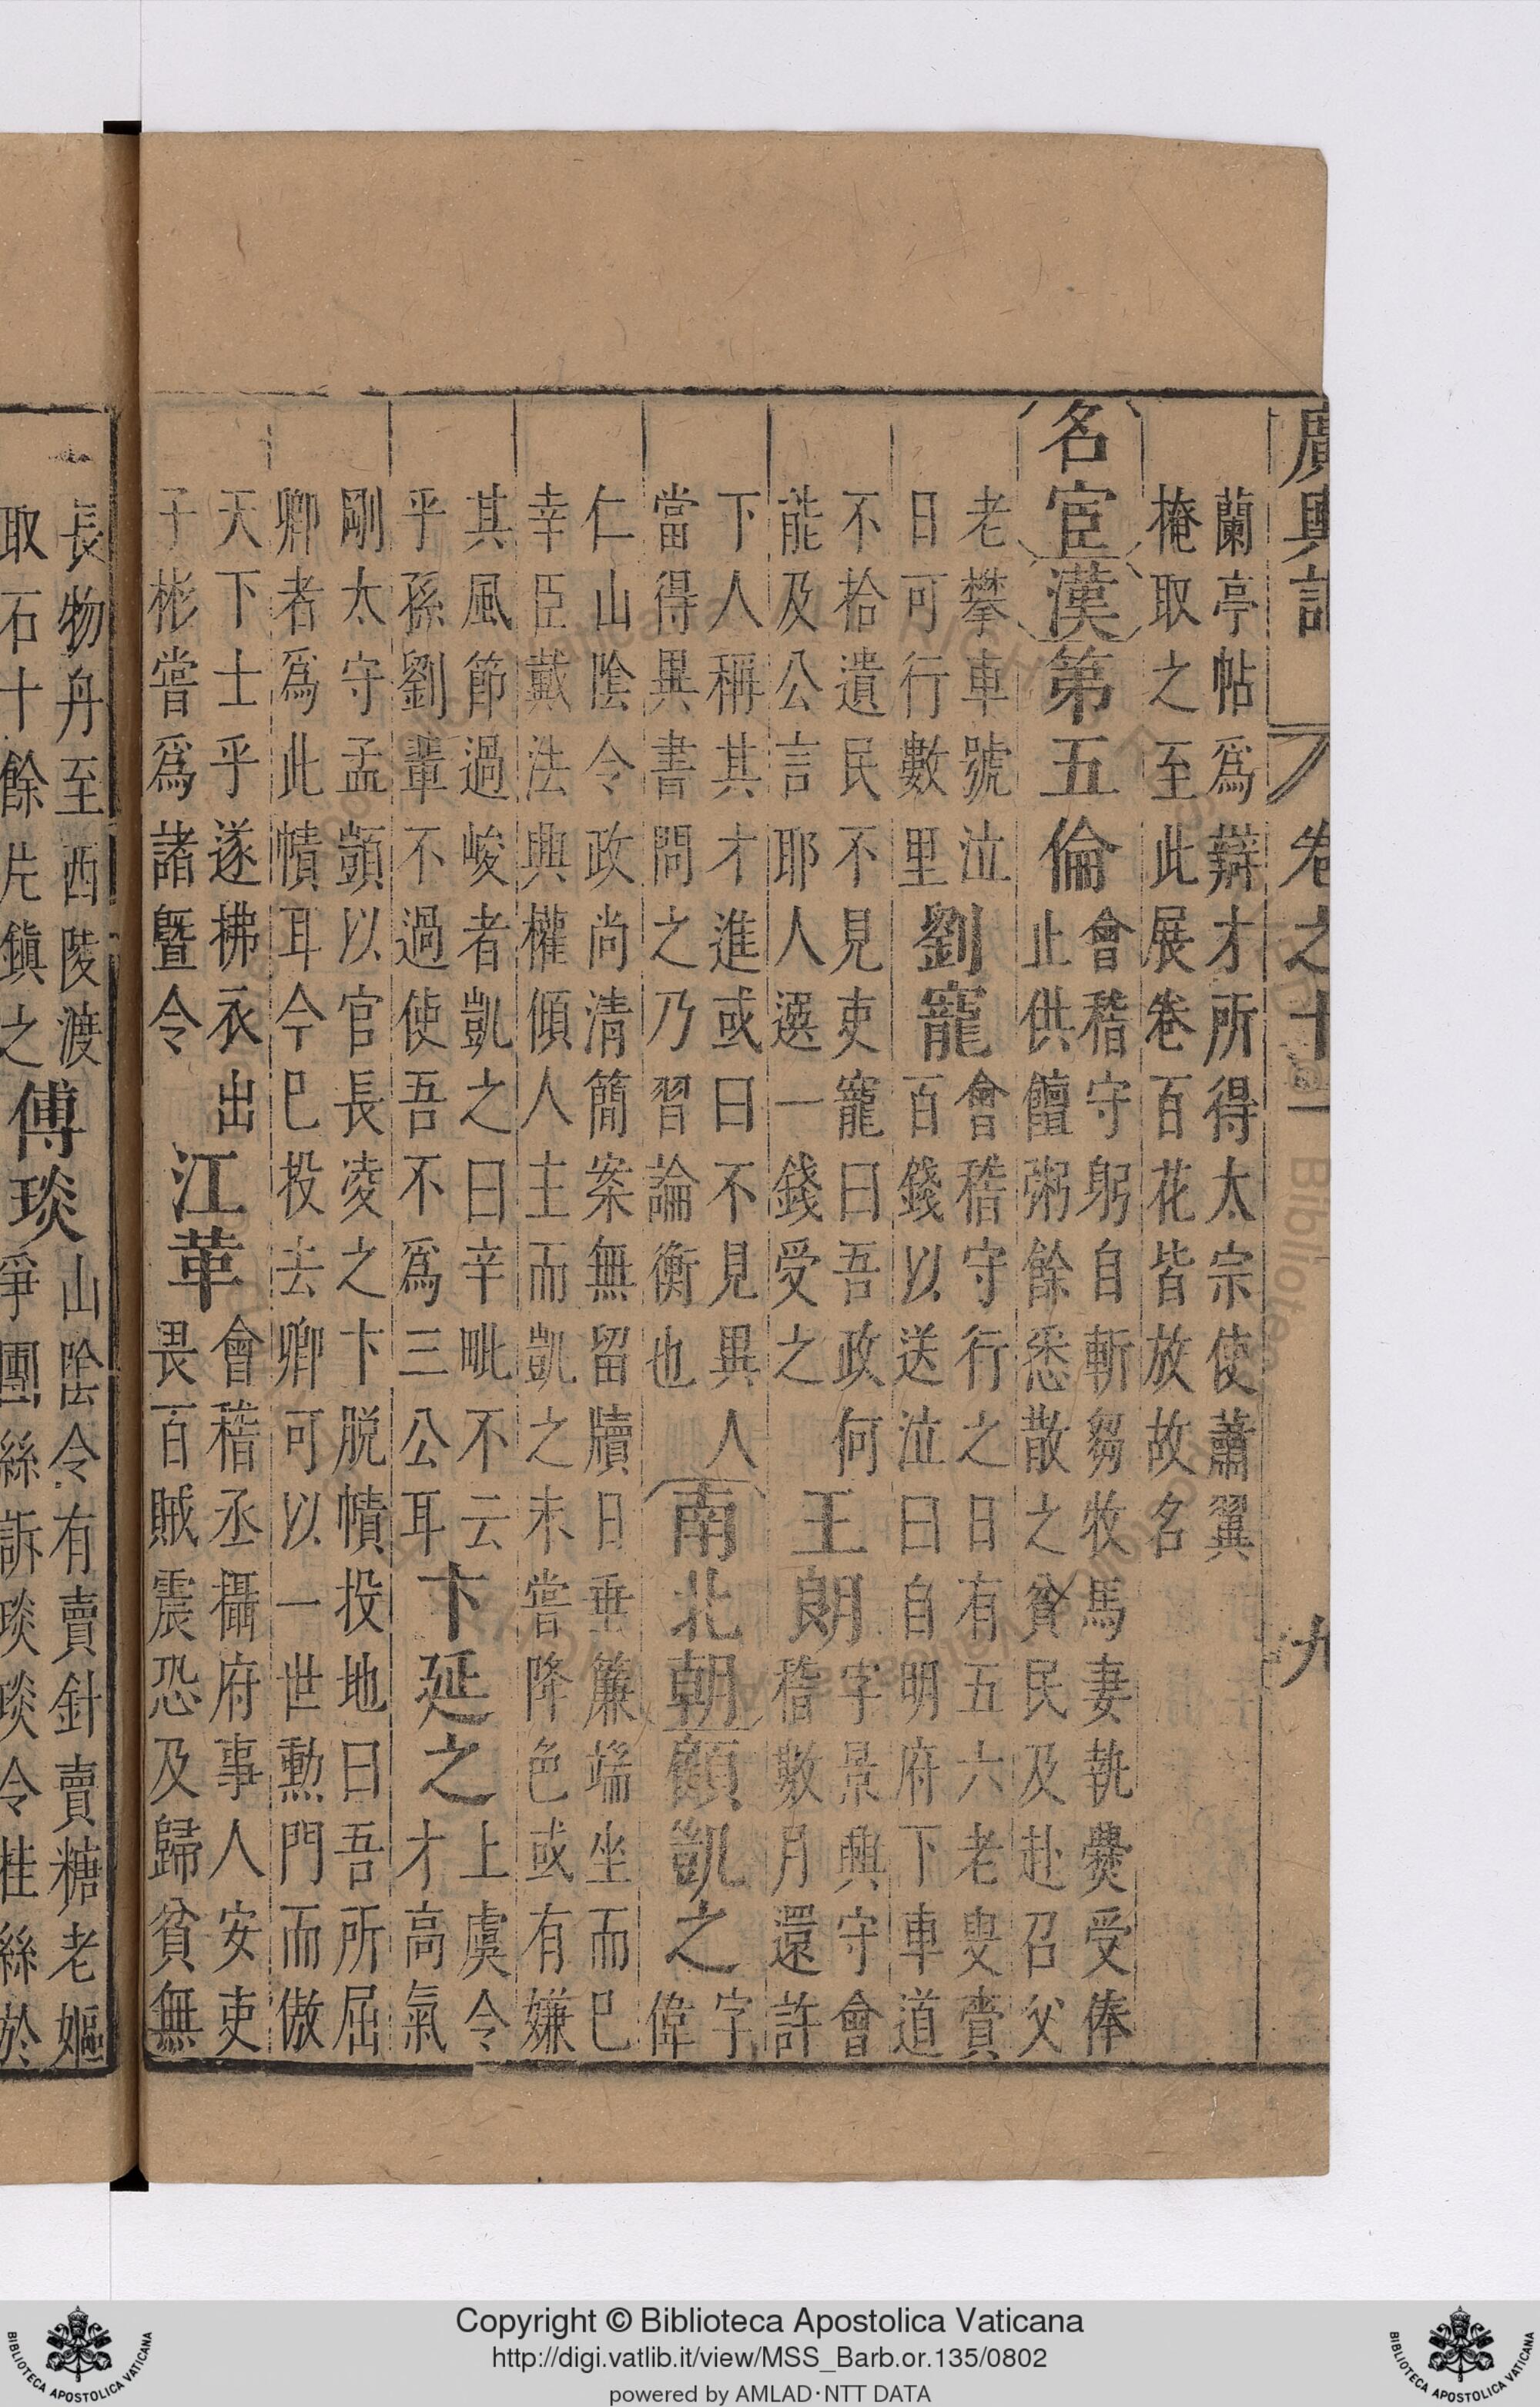 廣輿記 卷之十一 九
蘭亭帖爲辯才所得太宗使蕭翼
掩取之至此展卷百花皆放故名
名宦 漢 第五倫
會稽守躬自斬芻牧馬妻執爨受俸
止供饘粥餘悉散之貧民及赴召父
老攀車號泣
日可行數里
劉寵
會稽守行之日有五六老叟賫
百錢以送泣曰自明府下車道
不拾遺民不見吏寵曰吾政何
能及公言耶人選一錢受之
王朗
字景興守會
稽數月還許
下人稱其才進或曰不見異人
當得異書問之乃習論衡也
南北朝 顧凱之
字
偉
仁山陰令政尚清簡案無留牘日垂簾端坐而已
幸臣戴法興權傾人主而凱之未嘗降色或有嫌
其風節過峻者凱之曰辛毗不云
乎孫劉輩不過使吾不爲三公耳
卞延之
上虞令
才高氣
剛太守孟顗以官長凌之卞脫幘投地曰吾所屈
卿者爲此幘耳今已投去卿可以一世勲門而傲
天下士乎遂拂衣出
子彬嘗爲諸曁令
江革
會稽丞攝府事人安吏
畏百賊震恐及歸貧無
長物舟至西陵渡
取石十餘片鎭之
傅琰
山陰令有賣針賣糖老嫗
爭團絲訴琰琰令桂絲於
Copyright © Biblioteca Apostolica Vaticana
http://digi.vatlib.it/view/MSS_Barb.or.135/0802
powered by AMLAD·NTT DATA
BIBLIOTECA APOSTOLICA VATICANA
BIBLIOTECA APOSTOLICA VATICANA